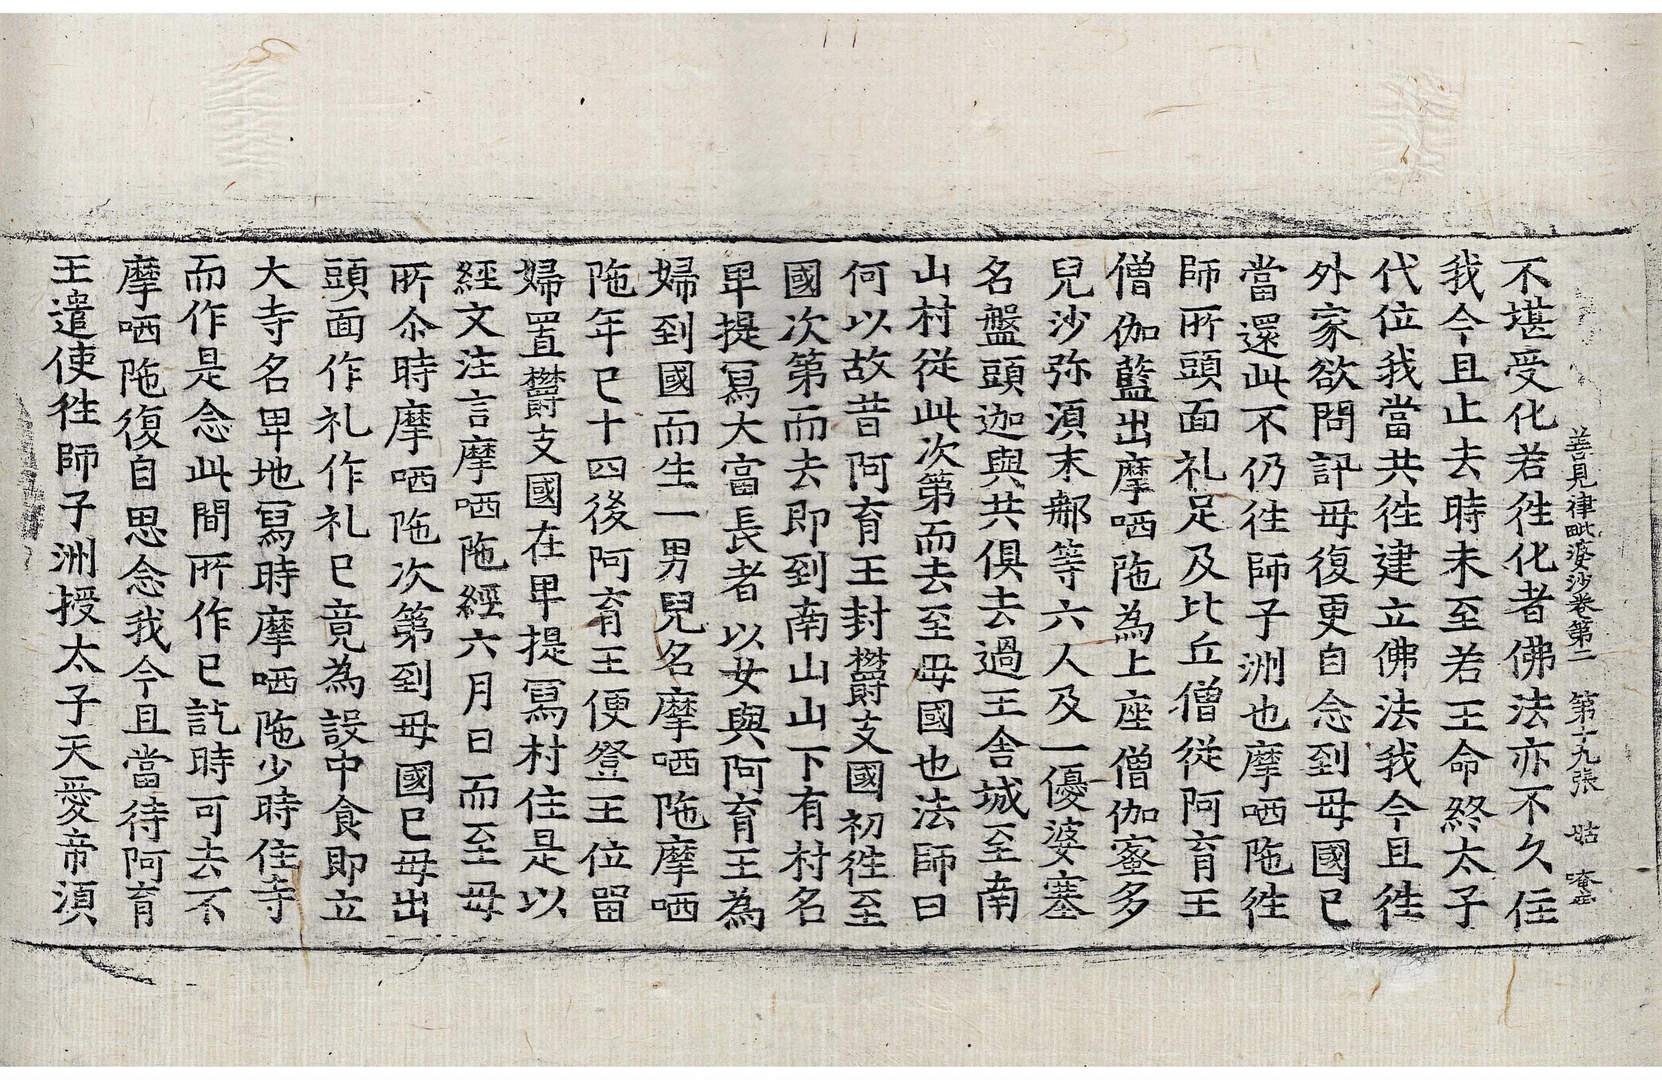 善見律毗婆沙卷第二　第十九張　姑
不堪受化若徃化者佛法亦不久住
我今且止去時未至若王命終太子
代位我當共徃建立佛法我今且徃
外家欲問訊母復更自念到母國已
當還此不仍徃師子洲也摩哂陁徃
師所頭面礼足及比丘僧從阿育王
僧伽藍出摩哂陁為上座僧伽蜜多
兒沙弥湏末那等六人及一優婆塞
名盤頭迦與共俱去過王舍城至南
山村從此次第而去至母國也法師曰
何以故昔阿育王封欝支國初徃至
國次第而去即到南山山下有村名
卑提寫大富長者以女與阿育王為
婦到國而生一男兒名摩哂陁摩哂
陁年已十四後阿育王便登王位留
婦置欝支國在卑提寫村住是以
經文注言摩哂陁經六月日而至母
所尒時摩哂陁次第到母國已母出
頭面作礼作礼已竟為設中食即立
大寺名卑地寫時摩哂陁少時住寺
而作是念此間所作已訖時可去不
摩哂陁復自思念我今且當待阿育
王遣使徃師子洲授太子天愛帝湏